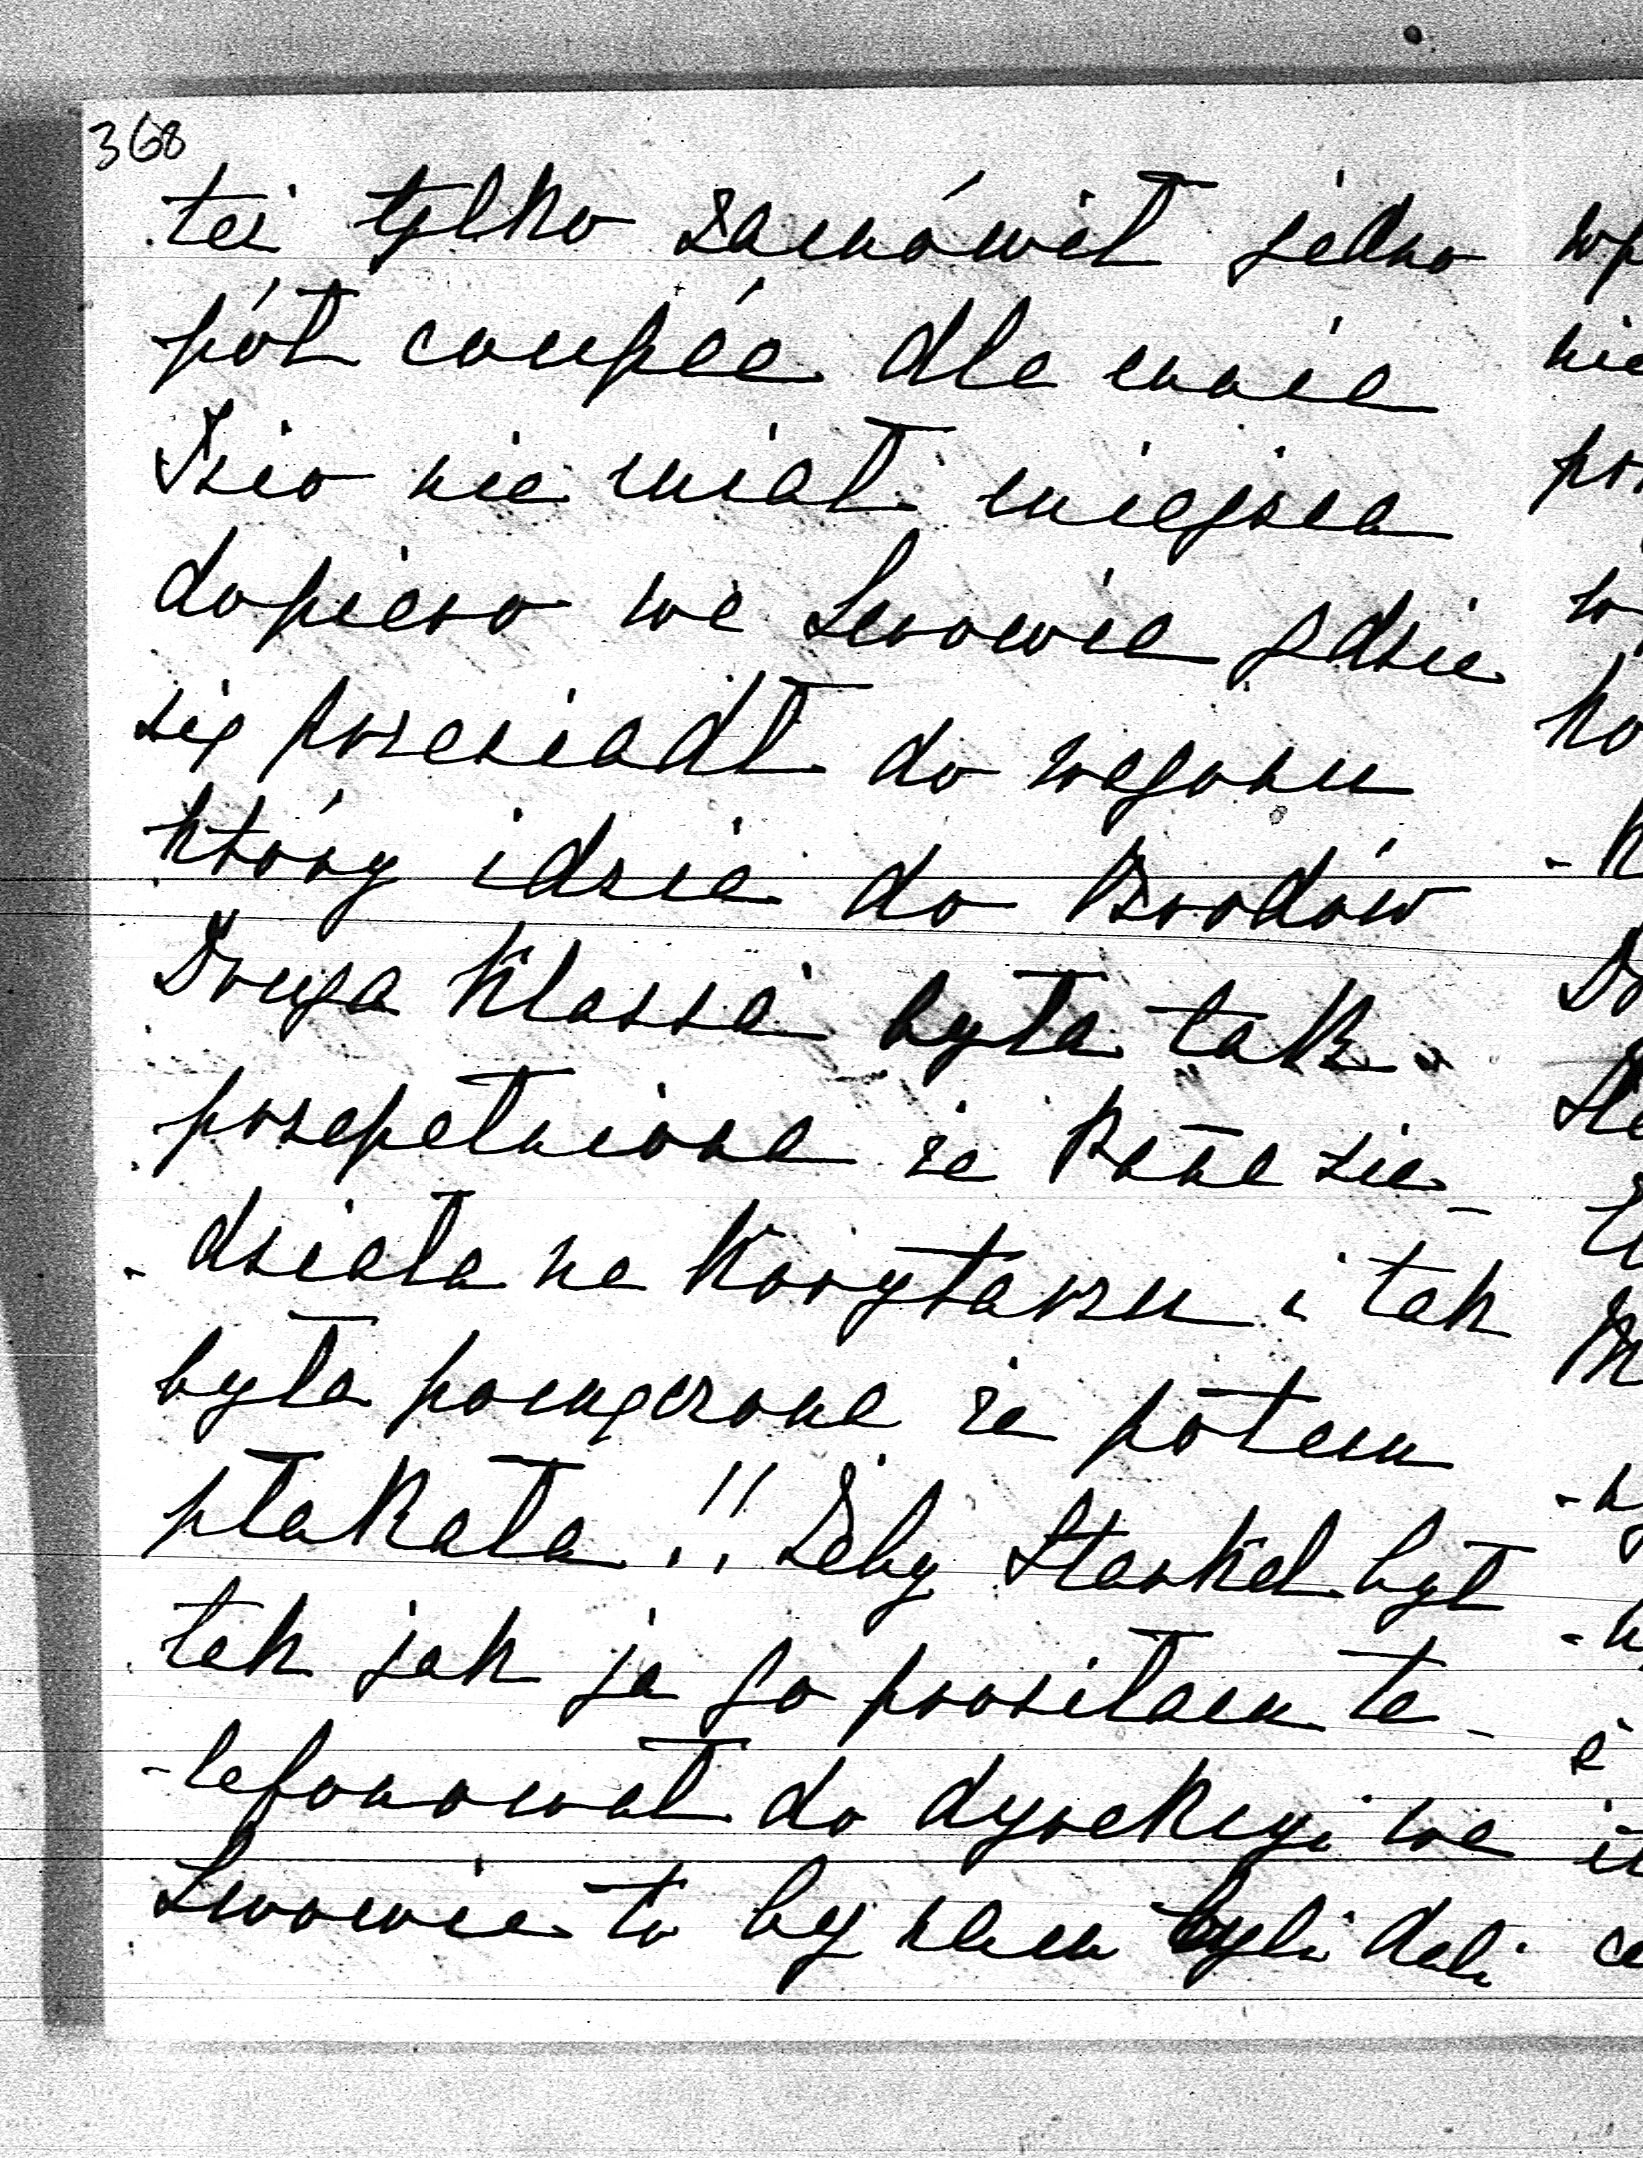 368
też tylko zamówił jedno
pół coupée dla mnie
Izio nie miał miejsca
dopiero we Lwowie gdzie
się przesiadł do wagonu
który idzie do Brodów
Druga Klassa była tak
przepełniona że Rose sie-
-działa na Korytarzu i tak
była pomęczona że potem
płakała!! Żeby Starkel był
tak jak ja go prosiłam te-
-lefonował do dyrekcyi we
Lwowie to by nam byli dali